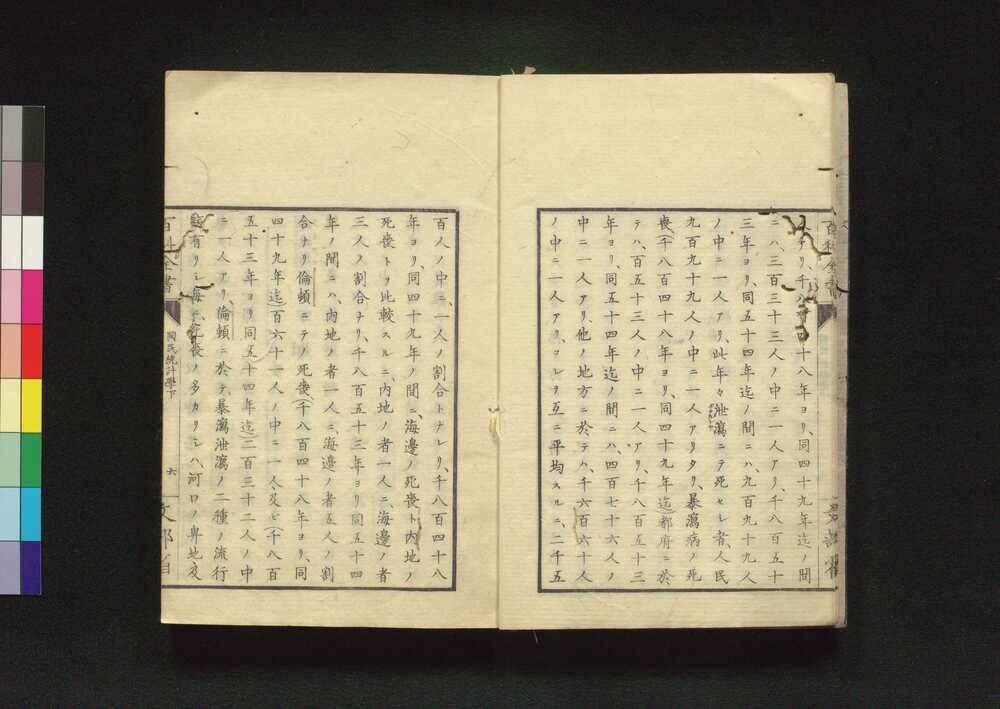 アリ、千八百四十八年ヨリ、同四十九年迄ノ間
ニハ、三百三十三人ノ中ニ一人アリ、千八百五十
三年ヨリ、同五十四年迄ノ間ニハ、九百九十九人
ノ中ニ一人アリ、此年々泄瀉ニテ死セシ者、人民
九百九十九人ノ中ニ一人アリタリ、暴瀉病ノ死
喪(千八百四十八年ヨリ、同四十九年迄)都府ニ於
テハ、百五十三人ノ中ニ一人アリ、千八百五十三
年ヨリ、同五十四年迄ノ間ニハ、四百七十六人ノ
中ニ一人アリ、他ノ地方ニ於テハ、千六百六十人
ノ中ニ一人アリ、コレヲ互ニ平均スルニ、二千五
百人ノ中ニ、一人ノ割合トナレリ、千八百四十八
年ヨリ、同四十九年ノ間ニ、海邊ノ死喪ト、内地ノ
死喪トヲ比較スルニ、内地ノ者一人ニ、海邊ノ者
三人ノ割合ナリ、千八百五十三年ヨリ同五十四
年ノ間ニハ、内地ノ者一人ニ、海邊ノ者五人ノ割
合ナリ、倫頓ニテノ死喪、(千八百四十八年ヨリ、同
四十九年迄)百六十一人ノ中ニ一人、及ビ(千八百
五十三年ヨリ同五十四年迄)二百三十二人ノ中
ニ一人アリ、倫頓ニ於テ、暴瀉泄瀉ノ二種ノ流行
有リシ毎ニ、死喪ノ多カリシハ、河口ノ卑地及
百科全書
國民統計學下
六
文部省